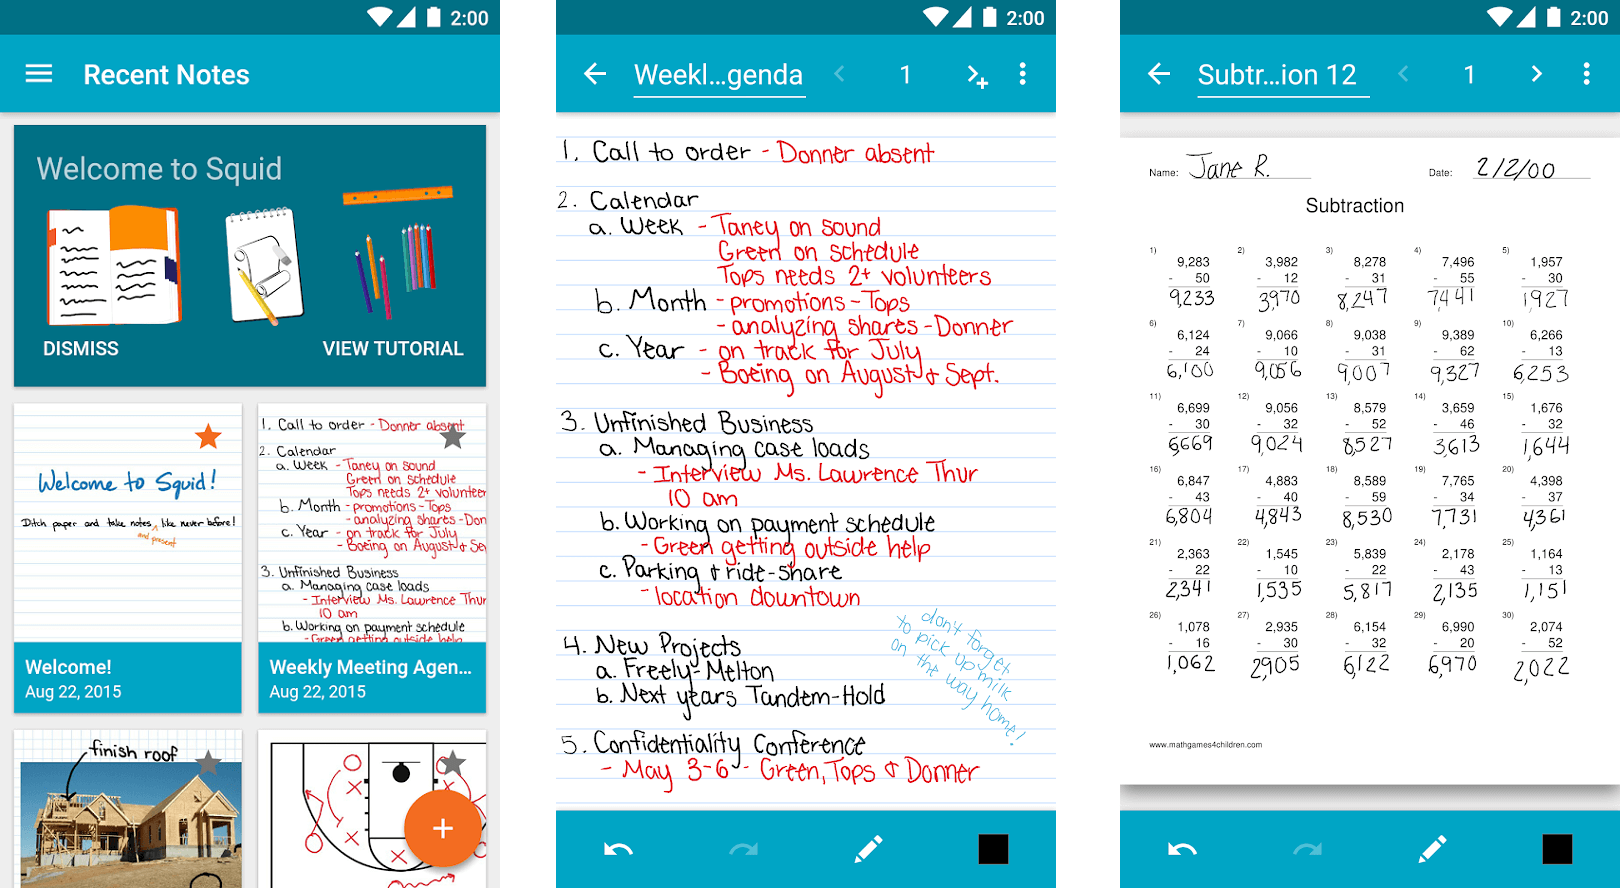 2:00
Recent Notes
Welcome to Squid
DISMISS
VIEW TUTORIAL
Welcome to Squid!
Ditch paper and take notes like never before!
and present
Welcome!
Aug 22, 2015
1. Call to order - Donner absent
2. Calendar
a. Week - Taney on sound
Green on schedule
Tops needs 2+ volunteer
b. Month - promotions-Tops
- analyzing shares-Don
c. Year - on track for July
- Boeing on August & Se
3. Unfinished Business
a. Managing case loads
- Interview Ms. Lawrence Thur
10 am
b. Working on payment schedule
- Green getting outside help
Weekly Meeting Agen...
Aug 22, 2015
finish roof
+
2:00
Weekl...genda
1
1. Call to order - Donner absent
2. Calendar
a. Week - Taney on sound
Green on schedule
Tops needs 2+ volunteers
b. Month - promotions-Tops
- analyzing shares-Donner
c. Year - on track for July
- Boeing on August & Sept.
3. Unfinished Business
a. Managing case loads
- Interview Ms. Lawrence Thur
10 am
b. Working on payment schedule
- Green getting outside help
c. Parking & ride-share
- location downtown
4. New Projects
a. Freely-Melton
b. Next years Tandem-Hold
don't forget
to pick up milk
on the way home!
5. Confidentiality Conference
- May 3-6 - Green, Tops & Donner
2:00
Subtr...ion 12
1
Name: Jane R. Date: 2/2/00
Subtraction
1) 2) 3) 4) 5)
9,283 3,982 8,278 7,496 1,957
- 50 - 12 - 31 - 55 - 30
9233 3,970 8,247 7441 1927
6) 7) 8) 9) 10)
6,124 9,066 9,038 9,389 6,266
- 24 - 10 - 31 - 62 - 13
6,100 9,056 9,007 9,327 6,253
11) 12) 13) 14) 15)
6,699 9,056 8,579 3,659 1,676
- 30 - 32 - 52 - 46 - 32
6669 9,024 8,527 3,613 1,644
16) 17) 18) 19) 20)
6,847 4,883 8,589 7,765 4,398
- 43 - 40 - 59 - 34 - 37
6,804 4,843 8,530 7,731 4,361
21) 22) 23) 24) 25)
2,363 1,545 5,839 2,178 1,164
- 22 - 10 - 22 - 43 - 13
2,341 1,535 5,817 2,135 1,151
26) 27) 28) 29) 30)
1,078 2,935 6,154 6,990 2,074
- 16 - 30 - 32 - 20 - 52
1,062 2,905 6,122 6,970 2,022
www.mathgames4children.com